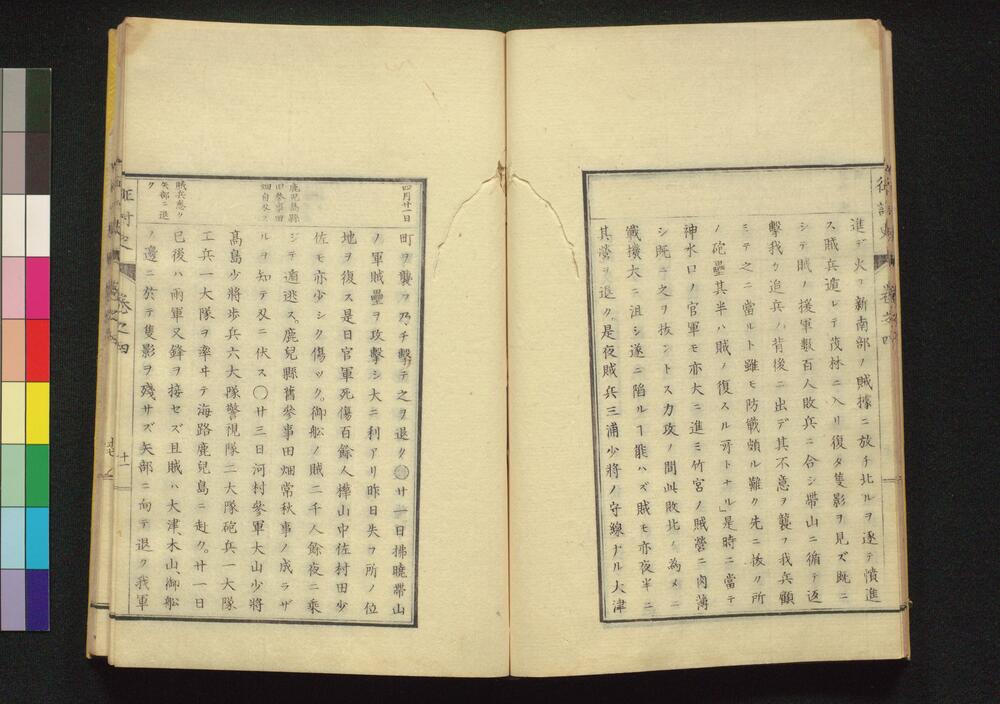 進デ火ヲ新南部ノ賊據ニ放チ北ルヲ逐テ憤進
ス賊兵遁レテ茂林ニ入リ復タ隻影ヲ見ズ既ニ
シテ賊ノ援軍數百人敗兵ニ合シ帶山ニ循テ返
擊我ガ追兵ノ背後ニ出デ其不意ヲ襲フ我兵顧
ミテ之ニ當ルト雖モ防戰頗ル難ク先ニ拔ク所
ノ砲壘其半ハ賊ノ復スル所トナル」是時ニ當テ
神水口ノ官軍モ亦大ニ進ミ竹宮ノ賊營ニ肉薄
シ既ニ之ヲ拔ントス力攻ノ間此敗北ノ為メニ
戰擴大ニ沮シ遂ニ陷ルヿ能ハズ賊モ亦夜半ニ
其營ヲ退ク」是夜賊兵三浦少將ノ守線ナル大津
四月廿一日
町ヲ襲フ乃チ擊テ之ヲ退ク 廿一日拂曉帶山
ノ軍賊壘ヲ攻擊シ大ニ利アリ昨日失フ所ノ位
地ヲ復ス是日官軍死傷百餘人樺山中佐村田少
佐モ亦少シク傷ツク。御船ノ賊二千人餘夜ニ乘
鹿児島縣
田參事田
畑自殺ス
ジテ遁逃ス。鹿兒縣舊參事田畑常秋事ノ成ラザ
ルヲ知テ刄ニ伏ス〇廿三日河村參軍大山少將
髙島少將歩兵六大隊警視隊二大隊砲兵一大隊
工兵一大隊ヲ率ヰテ海路鹿兒島ニ赴ク。廿一日
賊兵悉ク
矢部ニ退
ク
已後ハ兩軍又鋒ヲ接セズ且賊ハ大津、木山、御船
ノ邊ニ於テ隻影ヲ殘サズ矢部ニ向テ退ク我軍
卷之四
十一